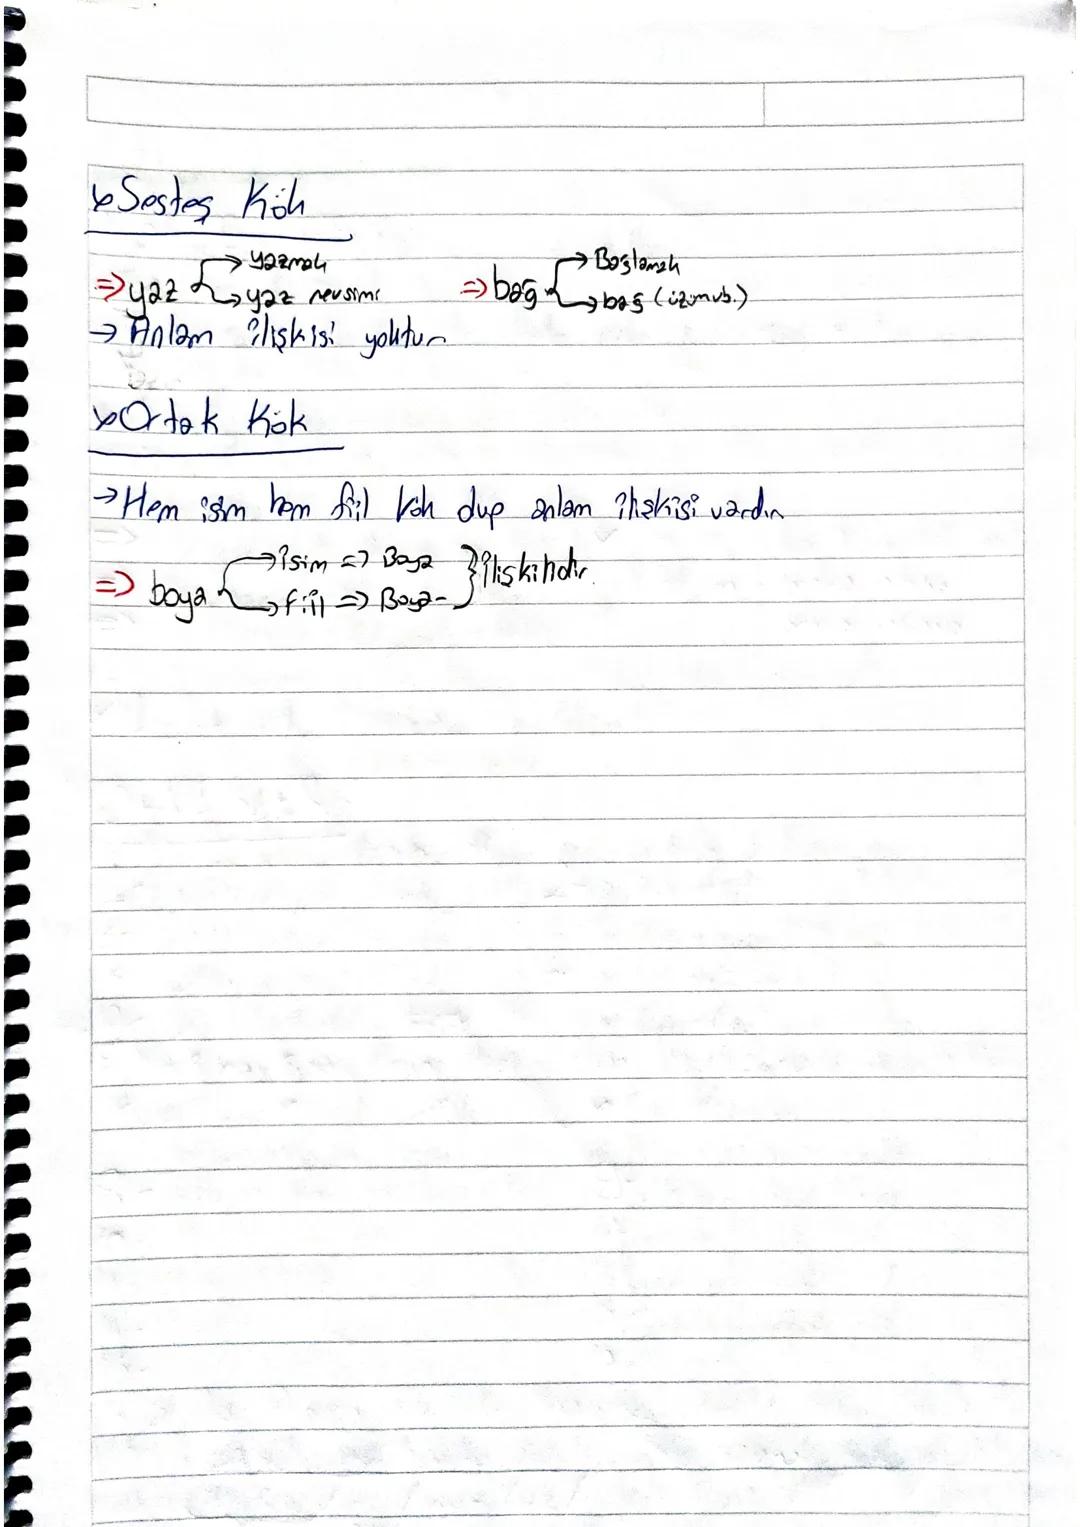 Sesteş Kök
⇒ yaz → yazmak ⇒ bağ → Bağlamak
→ yaz mevsimi → bağ (üzüm vb.)
→ Anlam ilişkisi yoktur
Ortak Kök
→ Hem isim hem fiil kök olup anlam ilişkisi vardır
→ isim => Boya
⇒ boya } ilişkilidir.
→ fiil => Boya-